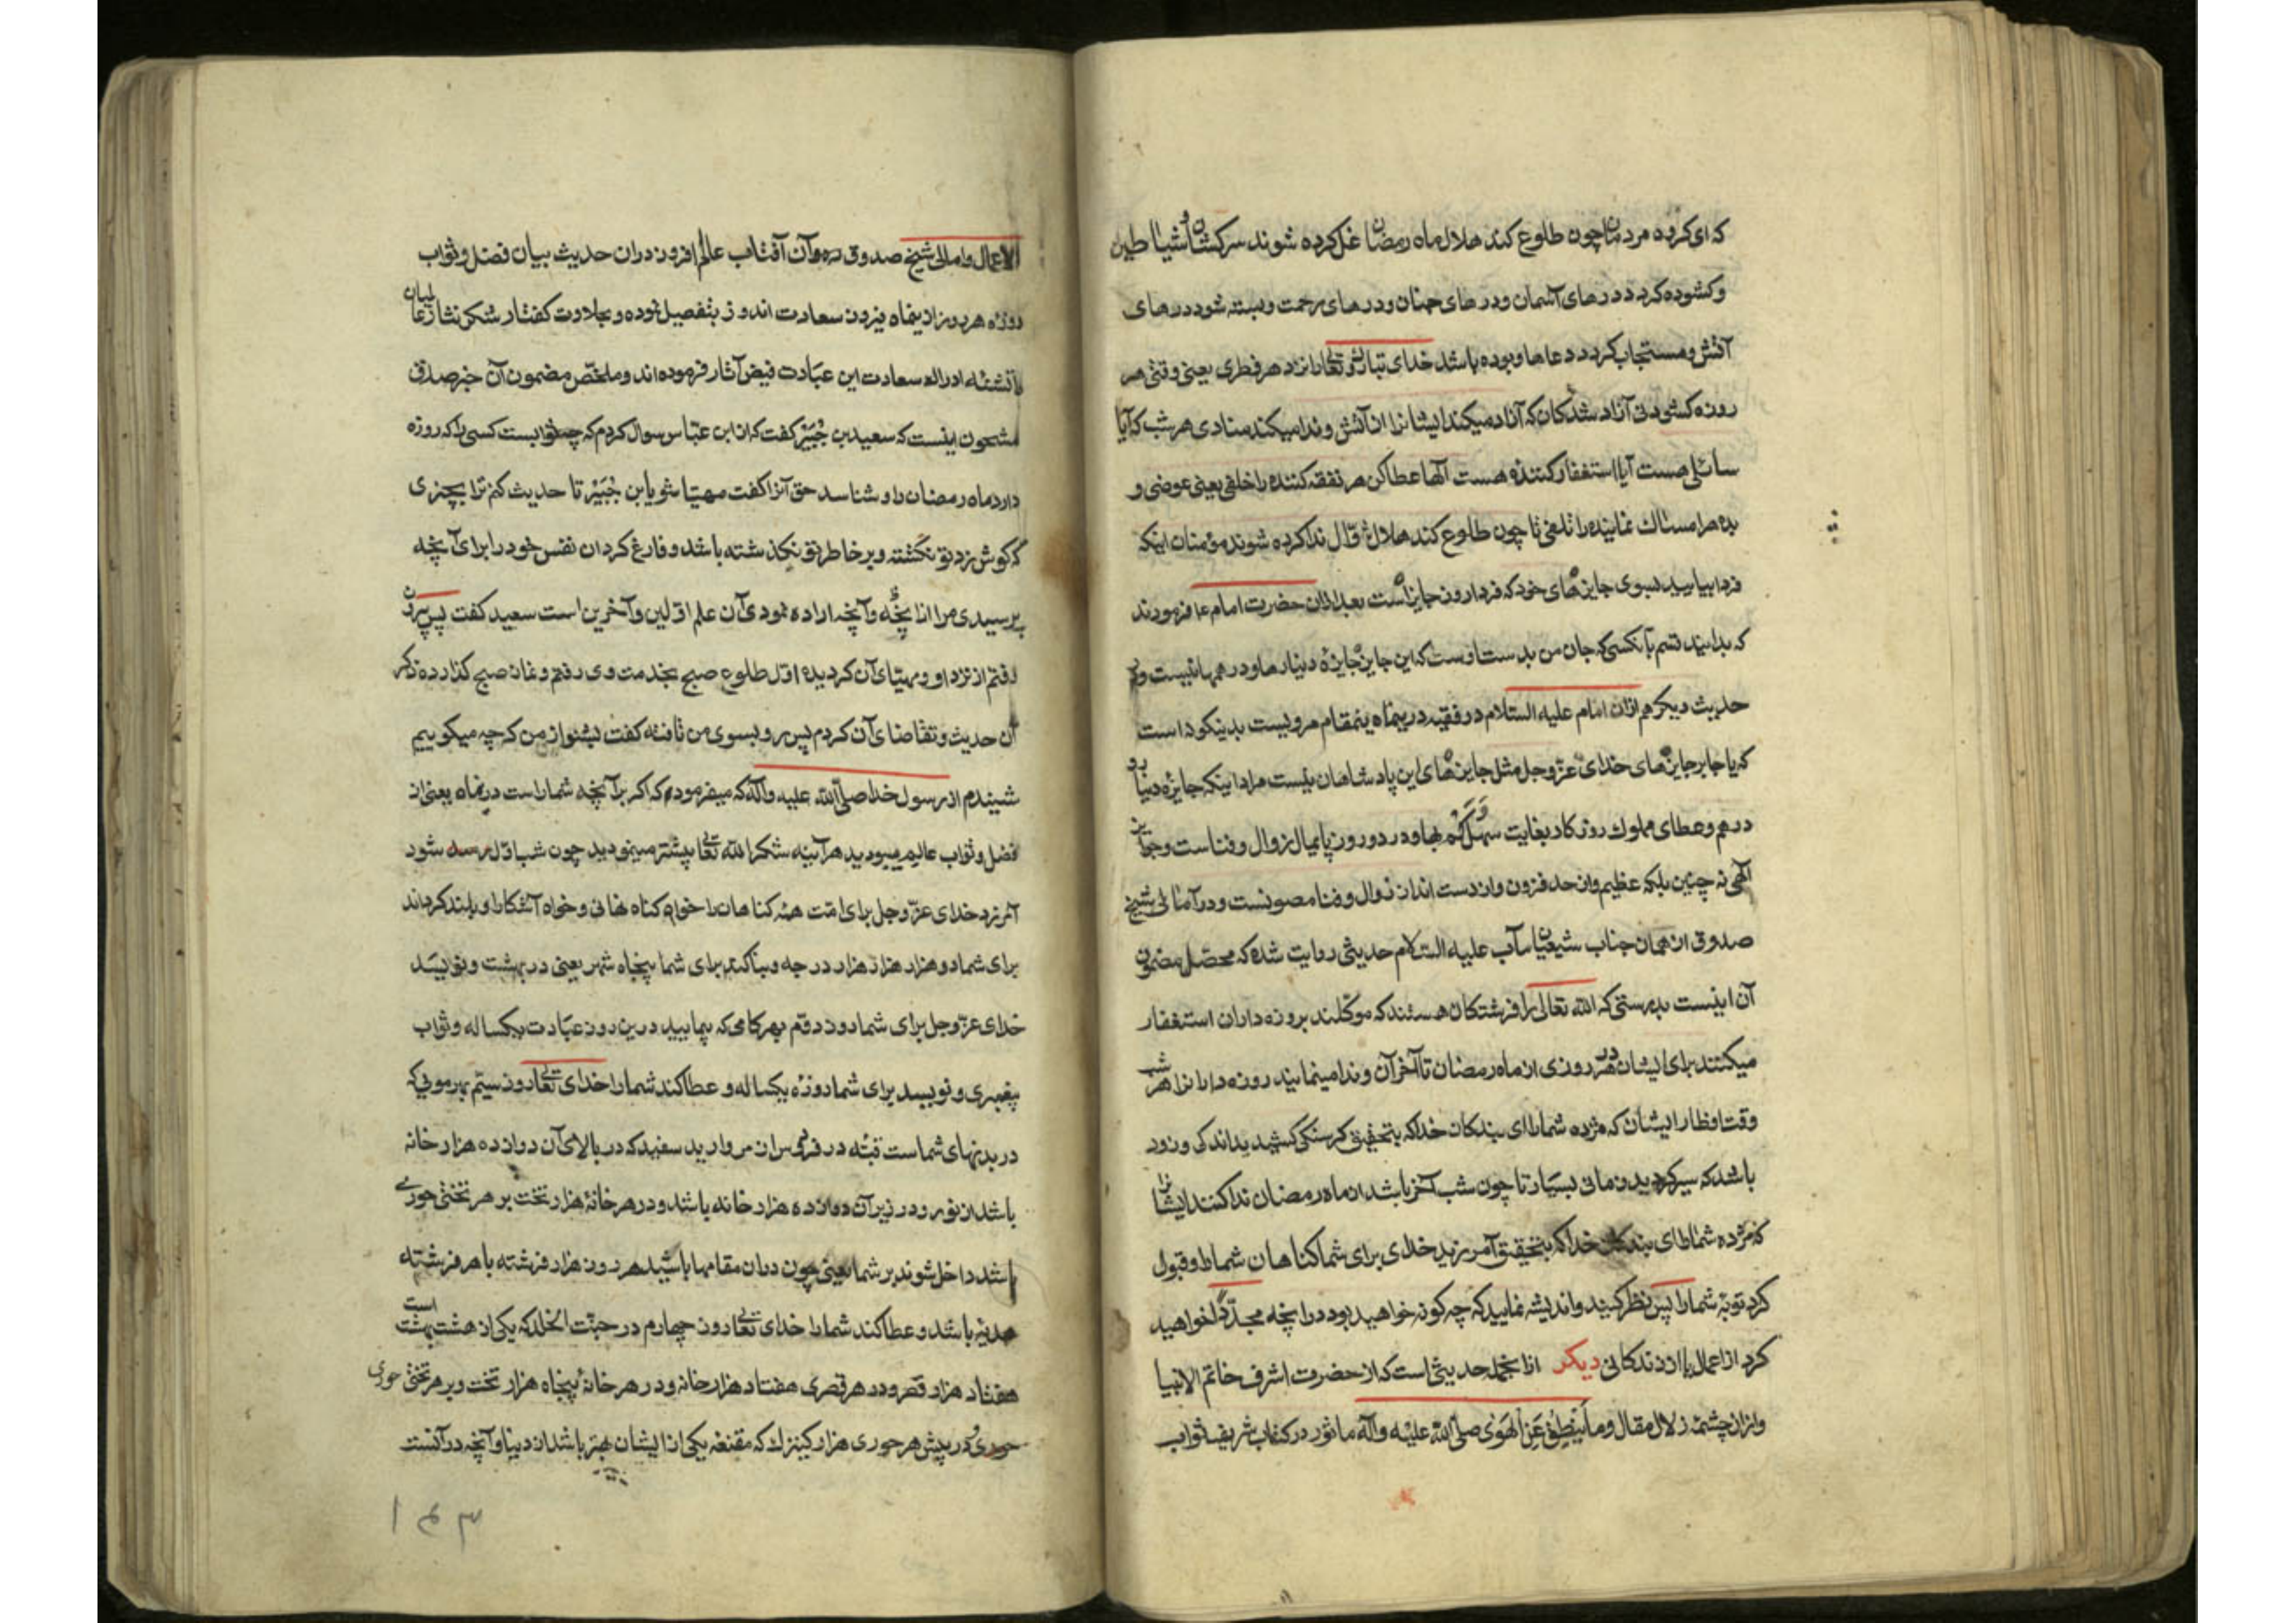 که ای کرده مردمان چون طلوع کند هلال ماه رمضان غل کرده شوند سرکشان و شیاطین
و کشوده کردد درهای آسمان و درهای جنان و درهای رحمت و بسته شود درهای
آتش و مستجاب کردد دعاها و بوده باشد خدای تبارک و تعالی را نزد هر فطری یعنی وقتی هر
روزه کشودنی آزاد شدکان که آزاد میکند ایشانرا از آتش و ندا میکند منادی هر شب که آیا
سائلی هست آیا استغفار کننده هست الها عطا کن هر نفقه کننده را خلفی یعنی عوضی و
بده هر امساک نماینده را تلفی تا چون طلوع کند هلال شوّال ندا کرده شوند مؤمنان اینکه
فردا بیایید بسوی جایزه‌های خود که فردا روز جایزه است بعد از ان حضرت امام ع فرمودند
که بدانید قسم بآنکسی که جان من بدست اوست که این جایزه جایزهٔ دینارها و درهمها نیست و در
حدیث دیکر هم ازان امام علیه السّلام در فقیه درینماه اینمقام مرویست بدینکونه است
که یا جابر جایزه‌های خدای عزّ و جل مثل جایزه‌های این پادشاهان نیست مراد اینکه جایزه دنیا رو
درهم و عطای ملوک روزکار بغایت سهل و کم بها و در دو روز پایمال زوال و فناست و جوایز
آلهی نه چنین بلکه عظیم و از حد فزون و از دست انداز زوال و فنا مصونست و در آمالی شیخ
صدوق از همان جناب شیعیان مآب علیه السّلام حدیثی روایت شده که محصّل مضمون
آن اینست بدرستی که اللّه تعالی را فرشتکان هستند که موکّلند بروزه داران استغفار
میکنند برای ایشان در هر روزی از ماه رمضان تا آخر آن و ندا مینمایند روزه دارانرا هر شب
وقت افطار ایشان که مژده شما را ای بندکان خدا که بتحقیق کرسنکی کشیدید اندکی و زود
باشد که سیر کردید زمانی بسیار تا چون شب آخر باشد از ماه رمضان ندا کنند ایشانرا
که مژده شما را ای بندکان خدا که بتحقیق آمرزید خدای برای شما کناهان شما را و قبول
کرد توبهٔ شما را پس نظر کنید و اندیشه نمایید که چه کونه خواهید بود در انچه مجدّدا خواهید
کرد از اعمال یا از زندکانی دیکر ازانجمله حدیثی است که از حضرت اشرف خاتم الانبیا
و ازان چشمهٔ زلال مقال و ما ینطق عن الهوی صلّی اللّه علیه و آله ماثور در کتاب شریف ثواب
الاعمال و امالی شیخ صدوق ره و آن آفتاب عالم افروز دران حدیث بیان فضل و ثواب
روزه هر روز از ینماه فیروز سعادت اندوز بتفصیل نموده و بحلاوت کفتار شکر نثار عالمیان
را تشنه ادراک سعادت این عبادت فیض آثار فرموده اند و ملخّص مضمون آن خبر صدق
مشحون اینست که سعید بن جُبَیْر کفت که از ابن عبّاس سوال کردم که چه ثوابست کسی را که روزه
دارد ماه رمضان را و شناسد حق آنرا کفت مهیّا شو یا بن جُبَیْر تا حدیث کنم ترا بچیزی
که کوش زد تو نکشته و بر خاطر تو نکذشته باشد و فارغ کردان نفس خود را برای آنچه
پرسیدی مرا از آنچه و آنچه اراده نمودی آن علم اوّلین و آخرین است سعید کفت پس بیرون
رفتم از نزد او و مهیّای آن کردیده اوّل طلوع صبح بخدمت وی رفتم و نماز صبح کذارده ذکر
آن حدیث و تقاضای آن کردم پس رو بسوی من تافته کفت بشنو از من که چه میکویم
شنیدم از رسول خدا صلّی اللّه علیه و آله که میفرمود که اکر بر آنچه شما راست درینماه یعنی از
فضل و ثواب عالم میبودید هرآینه شکر اللّه تعالی بیشتر مینمودید چون شب اوّل شود
آمرزد خدای عزّ و جل برای امّت همه کناهان را خواه کناه نهانی و خواه آشکارا و بلند کرداند
برای شما دو هزار هزار هزار درجه و بنا کند برای شما پنجاه شهر یعنی در بهشت و نویسد
خدای عزّ و جل برای شما روز دوّم بهر کامی که بپمایید درین روز عبادت یکساله و ثواب
پیغمبری و نویسد برای شما روزه یکساله و عطا کند شما را خدای تعالی روز سیّم بهر مویی که
در بدنهای شماست قبّه در فردوس از مروارید سفید که در بالای آن دوازده هزار خانه
باشد از نور و در زیر آن دوازده هزار خانه باشد و در هر خانهٔ هزار تخت بر هر تختی حوری
باشد داخل شوند بر شما یعنی چون دران مقامها باشید هر روز هزار فرشته با هر فرشته
هدیّه باشد و عطا کند شما را خدای تعالی روز چهارم در جنّت الخلد که یکی از هشت بهشت است
هفتاد هزار قصر و در هر قصری هفتاد هزار خانه و در هر خانهٔ پنجاه هزار تخت و بر هر تختی حوری
در پیش هر حوری هزار کنیزک که مقنعه یکی از ایشان بهتر باشد از دنیا و آنچه در آنست
۱۴۳